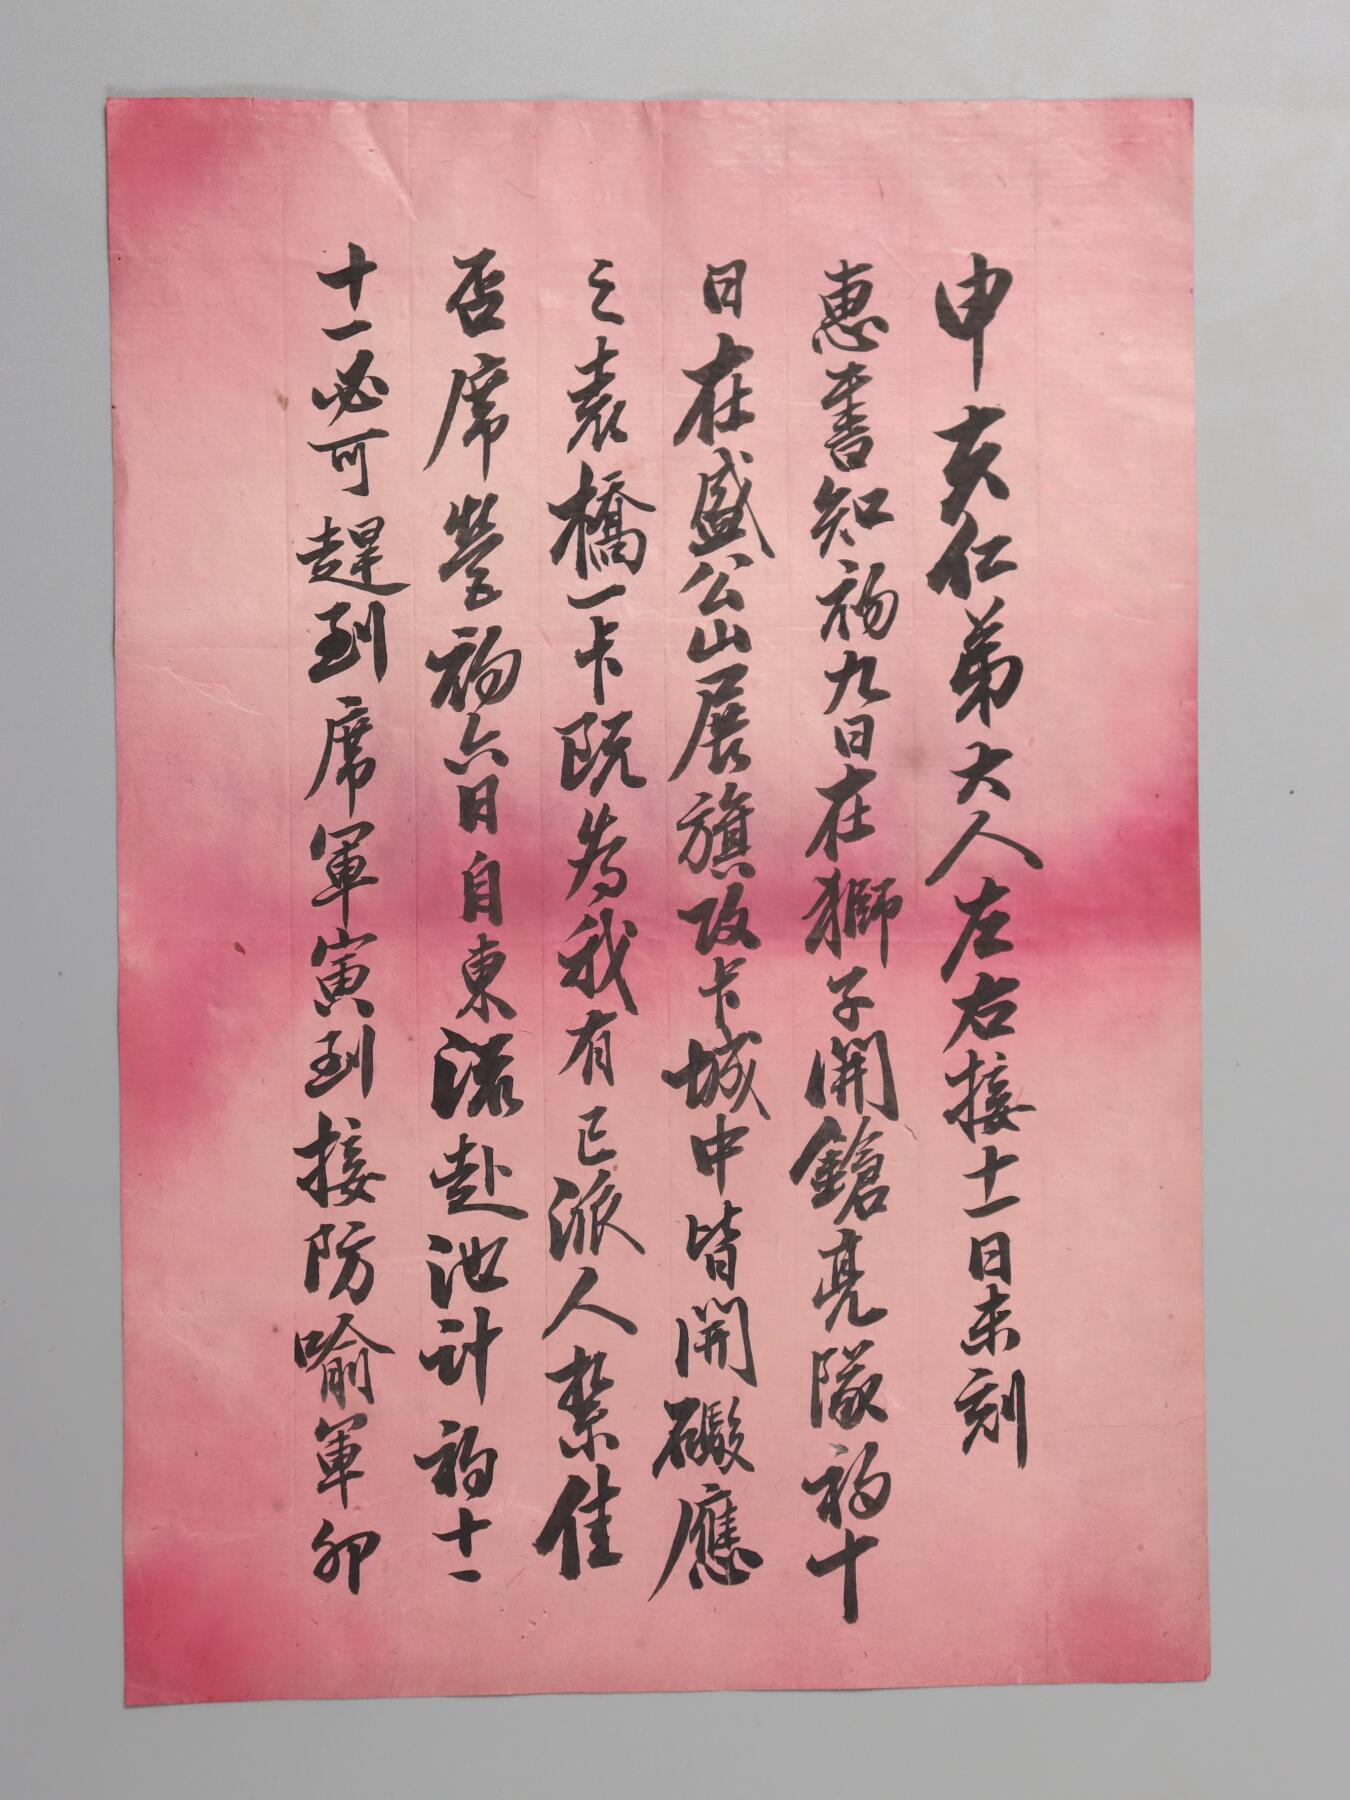 申夫仁弟大人左右接十一日未刻
惠書知初九日在獅子開鎗亮隊初十
日在盛公山展旗攻卡城中皆開礮應
之袁橋一卡既為我有已派人紮佳
否席營初六日自東流赴池計初十一
十一必可趕到席軍寅到接防喻軍卯